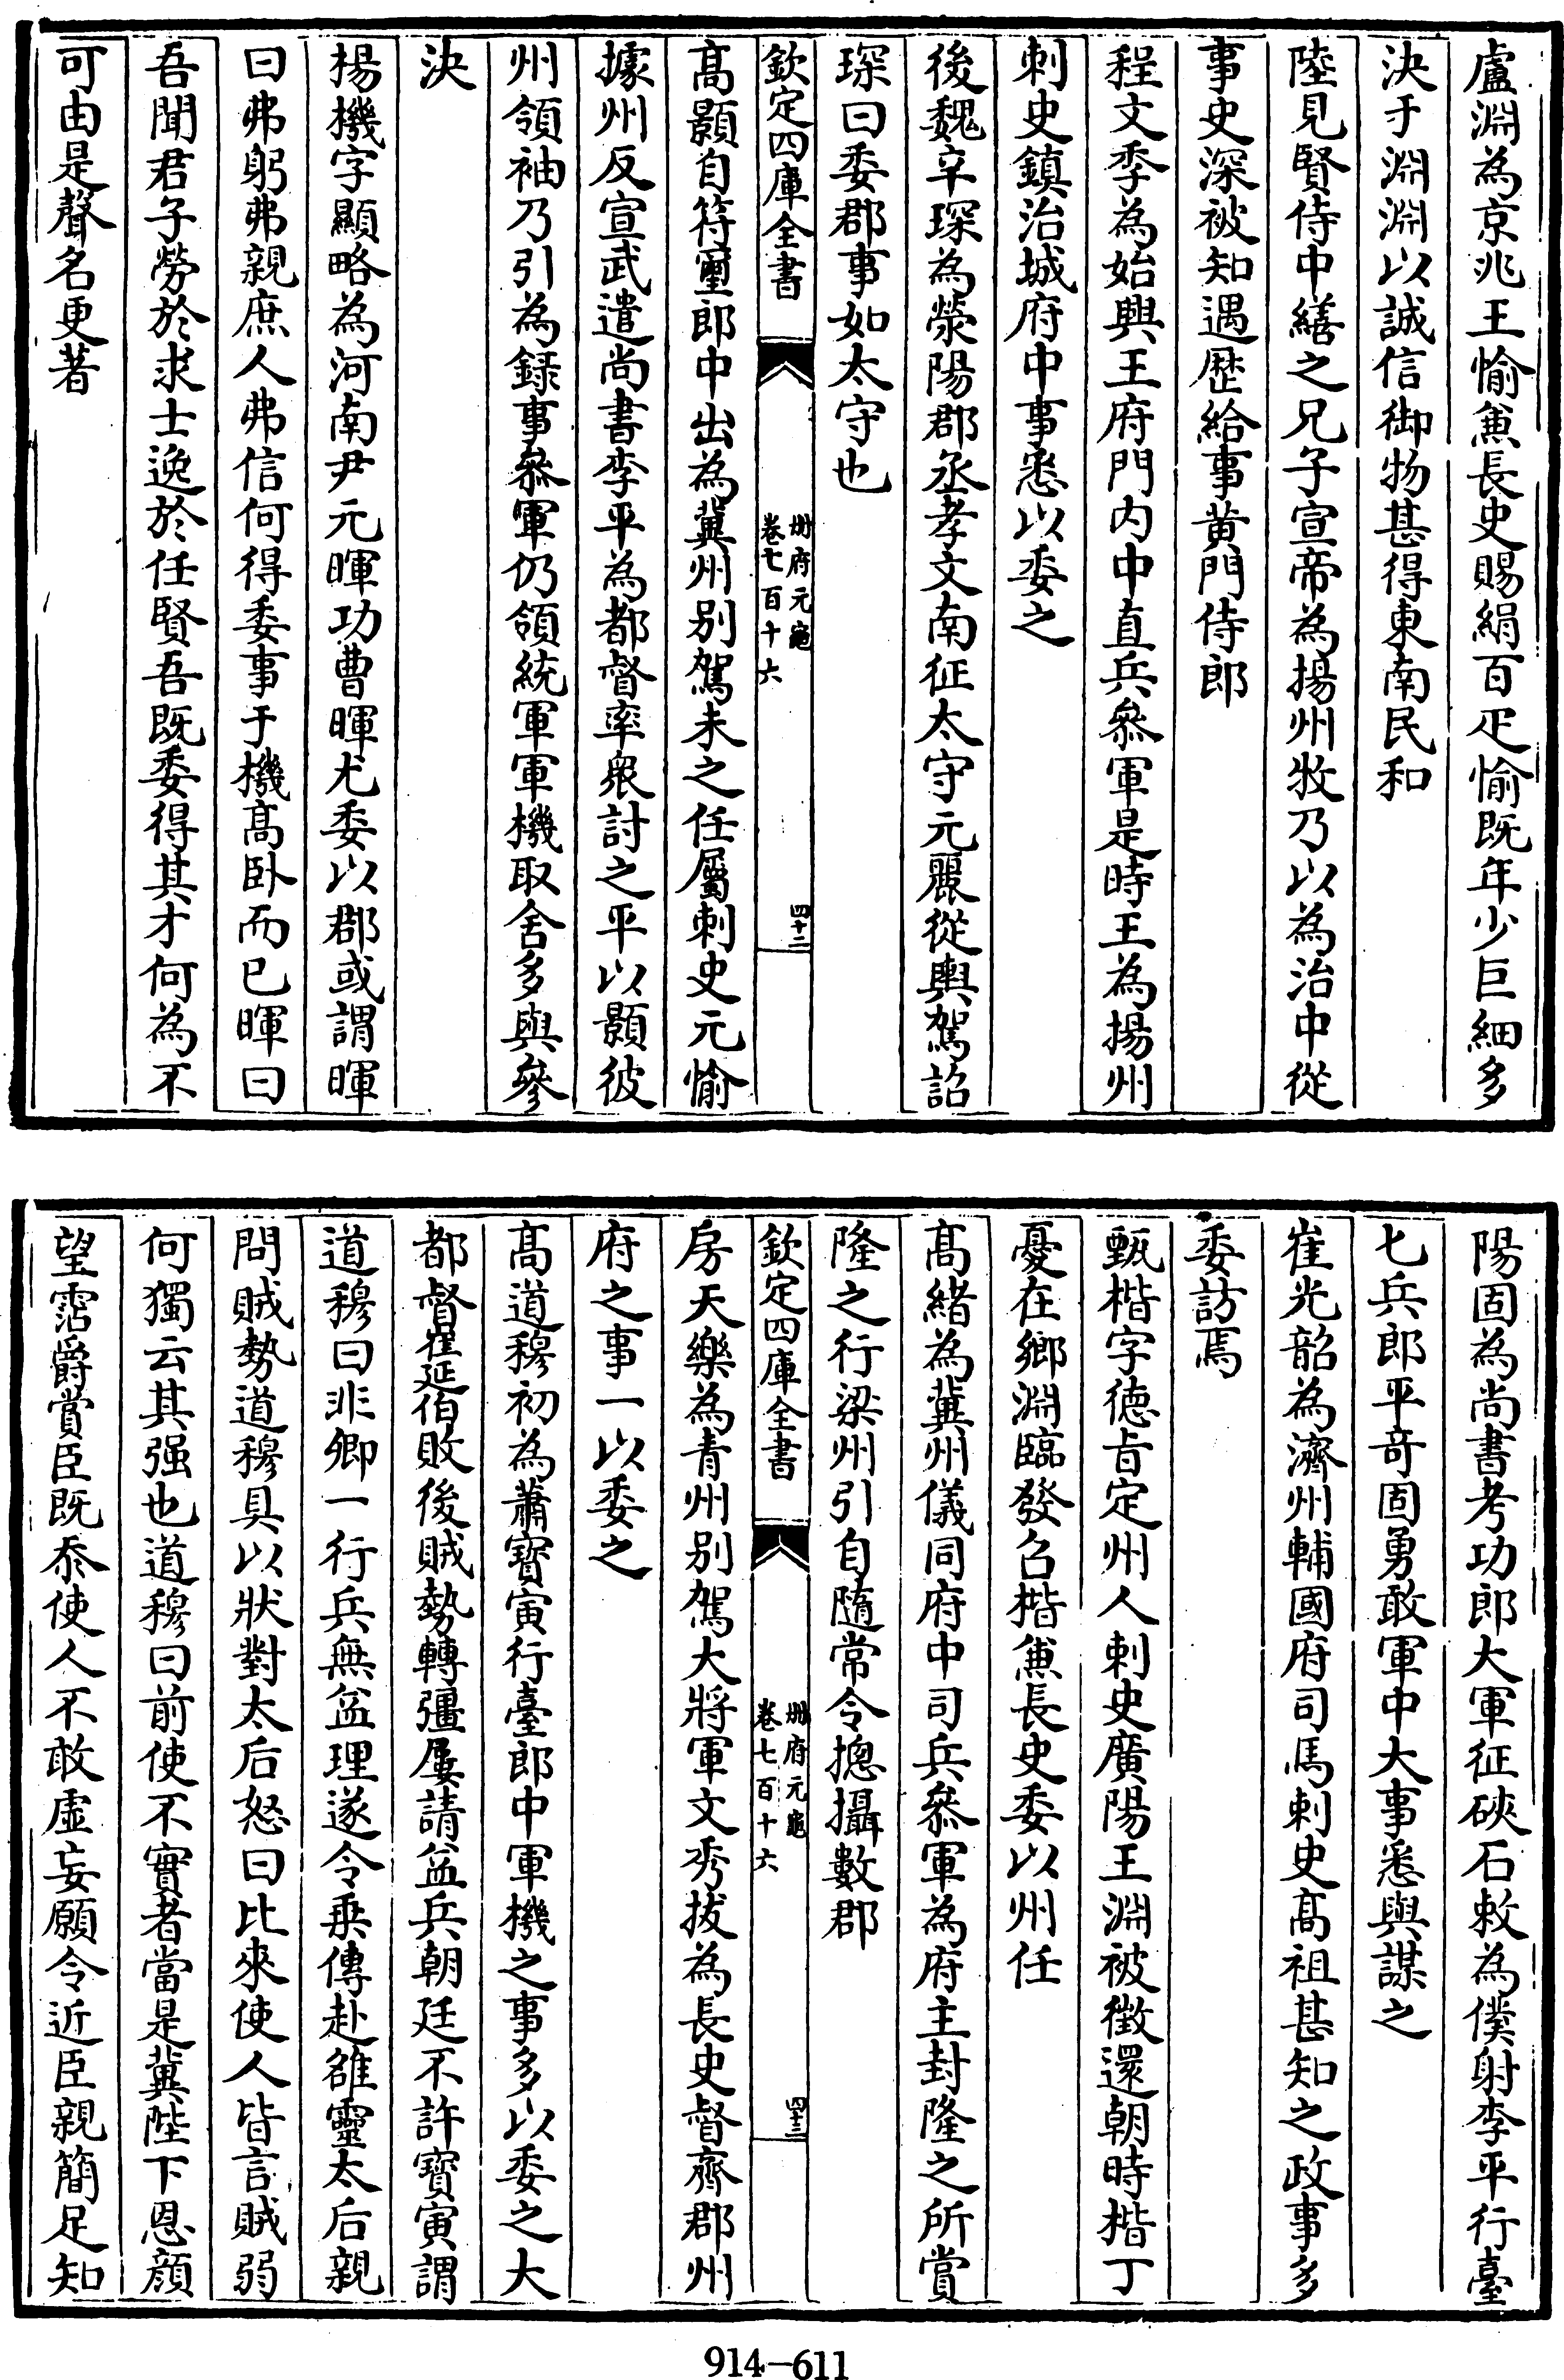 盧淵為京兆王愉兼長史賜絹百疋愉既年少巨細多
決于淵淵以誠信御物甚得東南民和
陸見賢侍中繕之兄子宣帝為揚州牧乃以為治中從
事史深被知遇歴給事黄門侍郎
程文季為始興王府門内中直兵叅軍是時王為揚州
刺史鎮治城府中事悉以委之
後魏辛琛為滎陽郡丞孝文南征太守元麗從輿駕詔
琛曰委郡事如太守也
欽定四庫全書
冊府元龜
卷七百十六
四十二
髙顥自符璽郎中出為冀州别駕未之任屬刺史元愉
據州反宣武遣尚書李平為都督率衆討之平以顥彼
州領袖乃引為録事叅軍仍領統軍軍機取舍多與參
決
楊機字顯略為河南尹元暉功曹暉尤委以郡或謂暉
曰弗躬弗親庶人弗信何得委事于機髙卧而已暉曰
吾聞君子勞於求士逸於任賢吾既委得其才何為不
可由是聲名更著
陽固為尚書考功郎大軍征硤石敕為僕射李平行臺
七兵郎平竒固勇敢軍中大事悉與謀之
崔光韶為濟州輔國府司馬刺史髙祖甚知之政事多
委訪焉
甄楷字徳㫖定州人刺史廣陽王淵被徴還朝時楷丁
憂在鄉淵臨發召楷兼長史委以州任
髙緒為冀州儀同府中司兵叅軍為府主封隆之所賞
隆之行梁州引自隨常令揔攝數郡
欽定四庫全書
冊府元龜
卷七百十六
四十三
房天樂為青州别駕大將軍文秀拔為長史督齊郡州
府之事一以委之
髙道穆初為蕭寳寅行臺郎中軍機之事多以委之大
都督崔延伯敗後賊勢轉彊屢請益兵朝廷不許寳寅謂
道穆曰非卿一行兵無益理遂令乗傳赴雒靈太后親
問賊勢道穆具以狀對太后怒曰比來使人皆言賊弱
何獨云其强也道穆曰前使不實者當是冀陛下恩顔
望霑爵賞臣既忝使人不敢虚妄願令近臣親簡足知
914-611